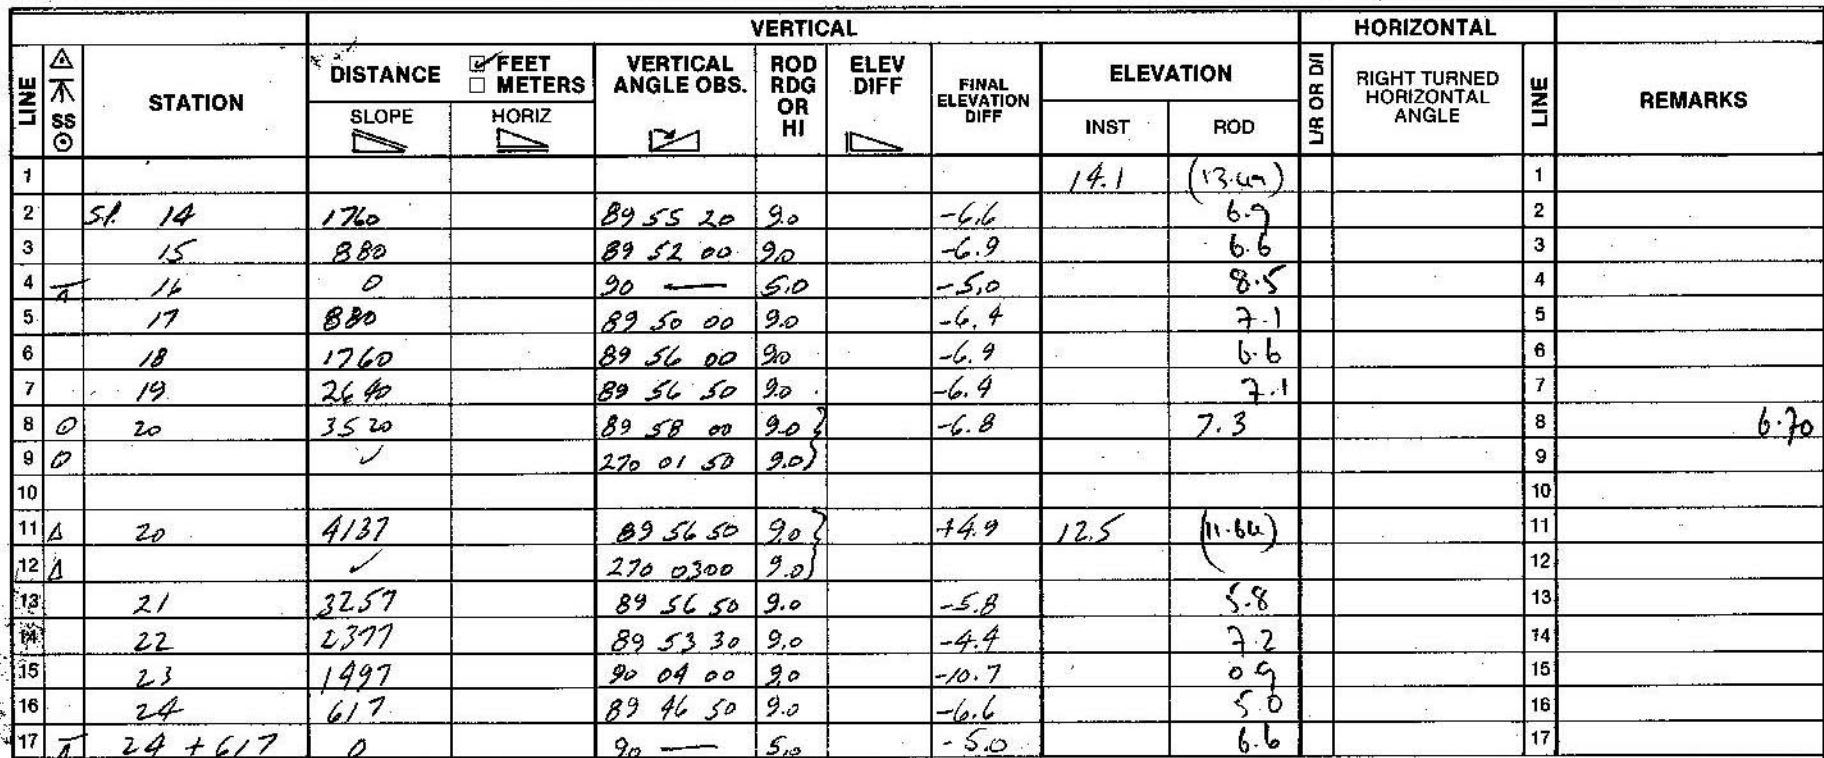 VERTICAL HORIZONTAL
LINE SS STATION DISTANCE FEET METERS VERTICAL ANGLE OBS. ROD RDG OR HI ELEV DIFF FINAL ELEVATION DIFF ELEVATION L/R OR D/I RIGHT TURNED HORIZONTAL ANGLE LINE REMARKS
SLOPE HORIZ INST ROD
1 14.1 (13.49) 1
2 St. 14 1760 89 55 20 9.0 -6.6 6.9 2
3 15 880 89 52 00 9.0 -6.9 6.6 3
4 16 0 90 — 5.0 -5.0 8.5 4
5 17 880 89 50 00 9.0 -6.4 7.1 5
6 18 1760 89 56 00 9.0 -6.9 6.6 6
7 19 2640 89 56 50 9.0 -6.4 7.1 7
8 20 3520 89 58 00 9.0 -6.8 7.3 8 6.70
9 ✓ 270 01 50 9.0 9
10 10
11 Δ 20 4137 89 56 50 9.0 +4.9 12.5 (11.64) 11
12 Δ ✓ 270 03 00 9.0 12
13 21 3257 89 56 50 9.0 -5.8 5.8 13
14 22 2377 89 53 30 9.0 -4.4 7.2 14
15 23 1497 90 04 00 9.0 -10.7 0.9 15
16 24 617 89 46 50 9.0 -6.6 5.0 16
17 24 + 617 0 90 — 5.0 -5.0 6.6 17